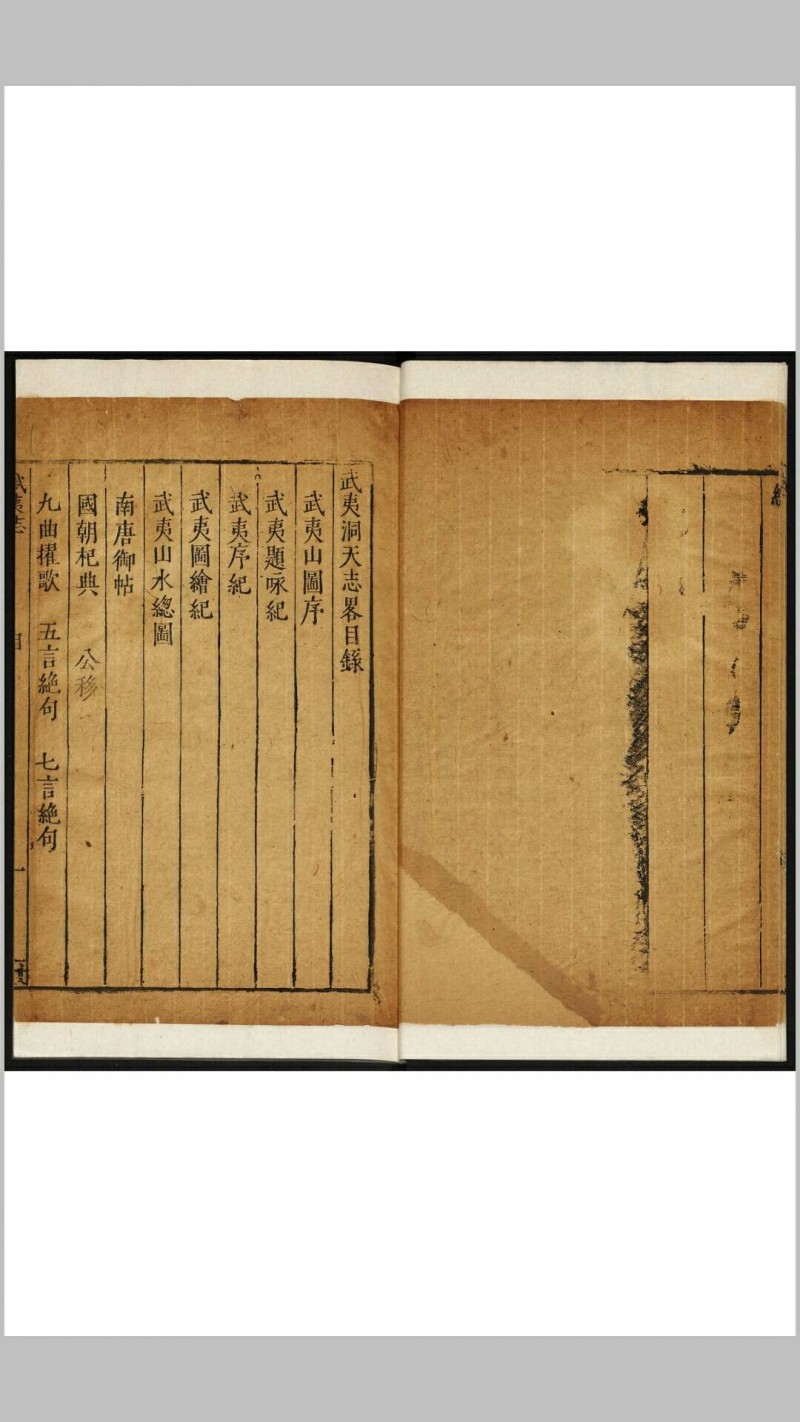 武夷洞天志畧目錄
武夷山圖序
武夷題咏紀
武夷序紀
武夷圖繪紀
武夷山水總圖
南唐御帖
國朝杞典 公移
九曲擢歌 五言絕句 七言絕句
武夷志 目 一